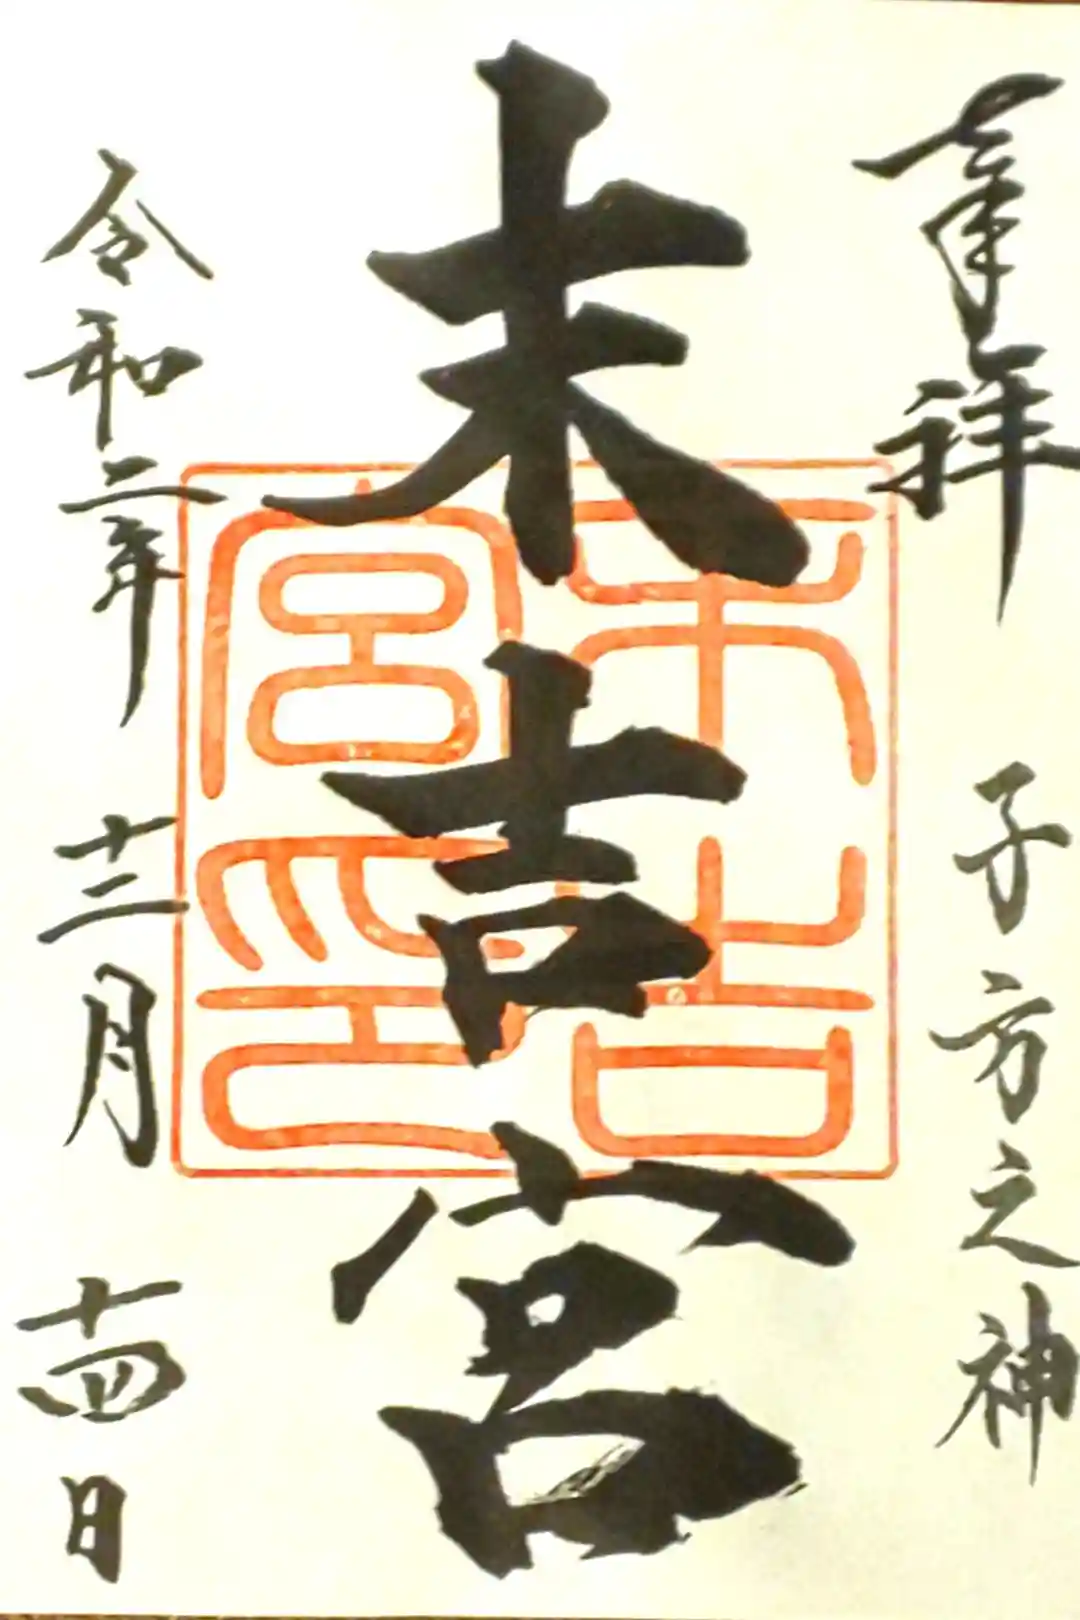 奉拝 子方之神
末吉宮
令和二年 十二月 十四日
末吉
宮印